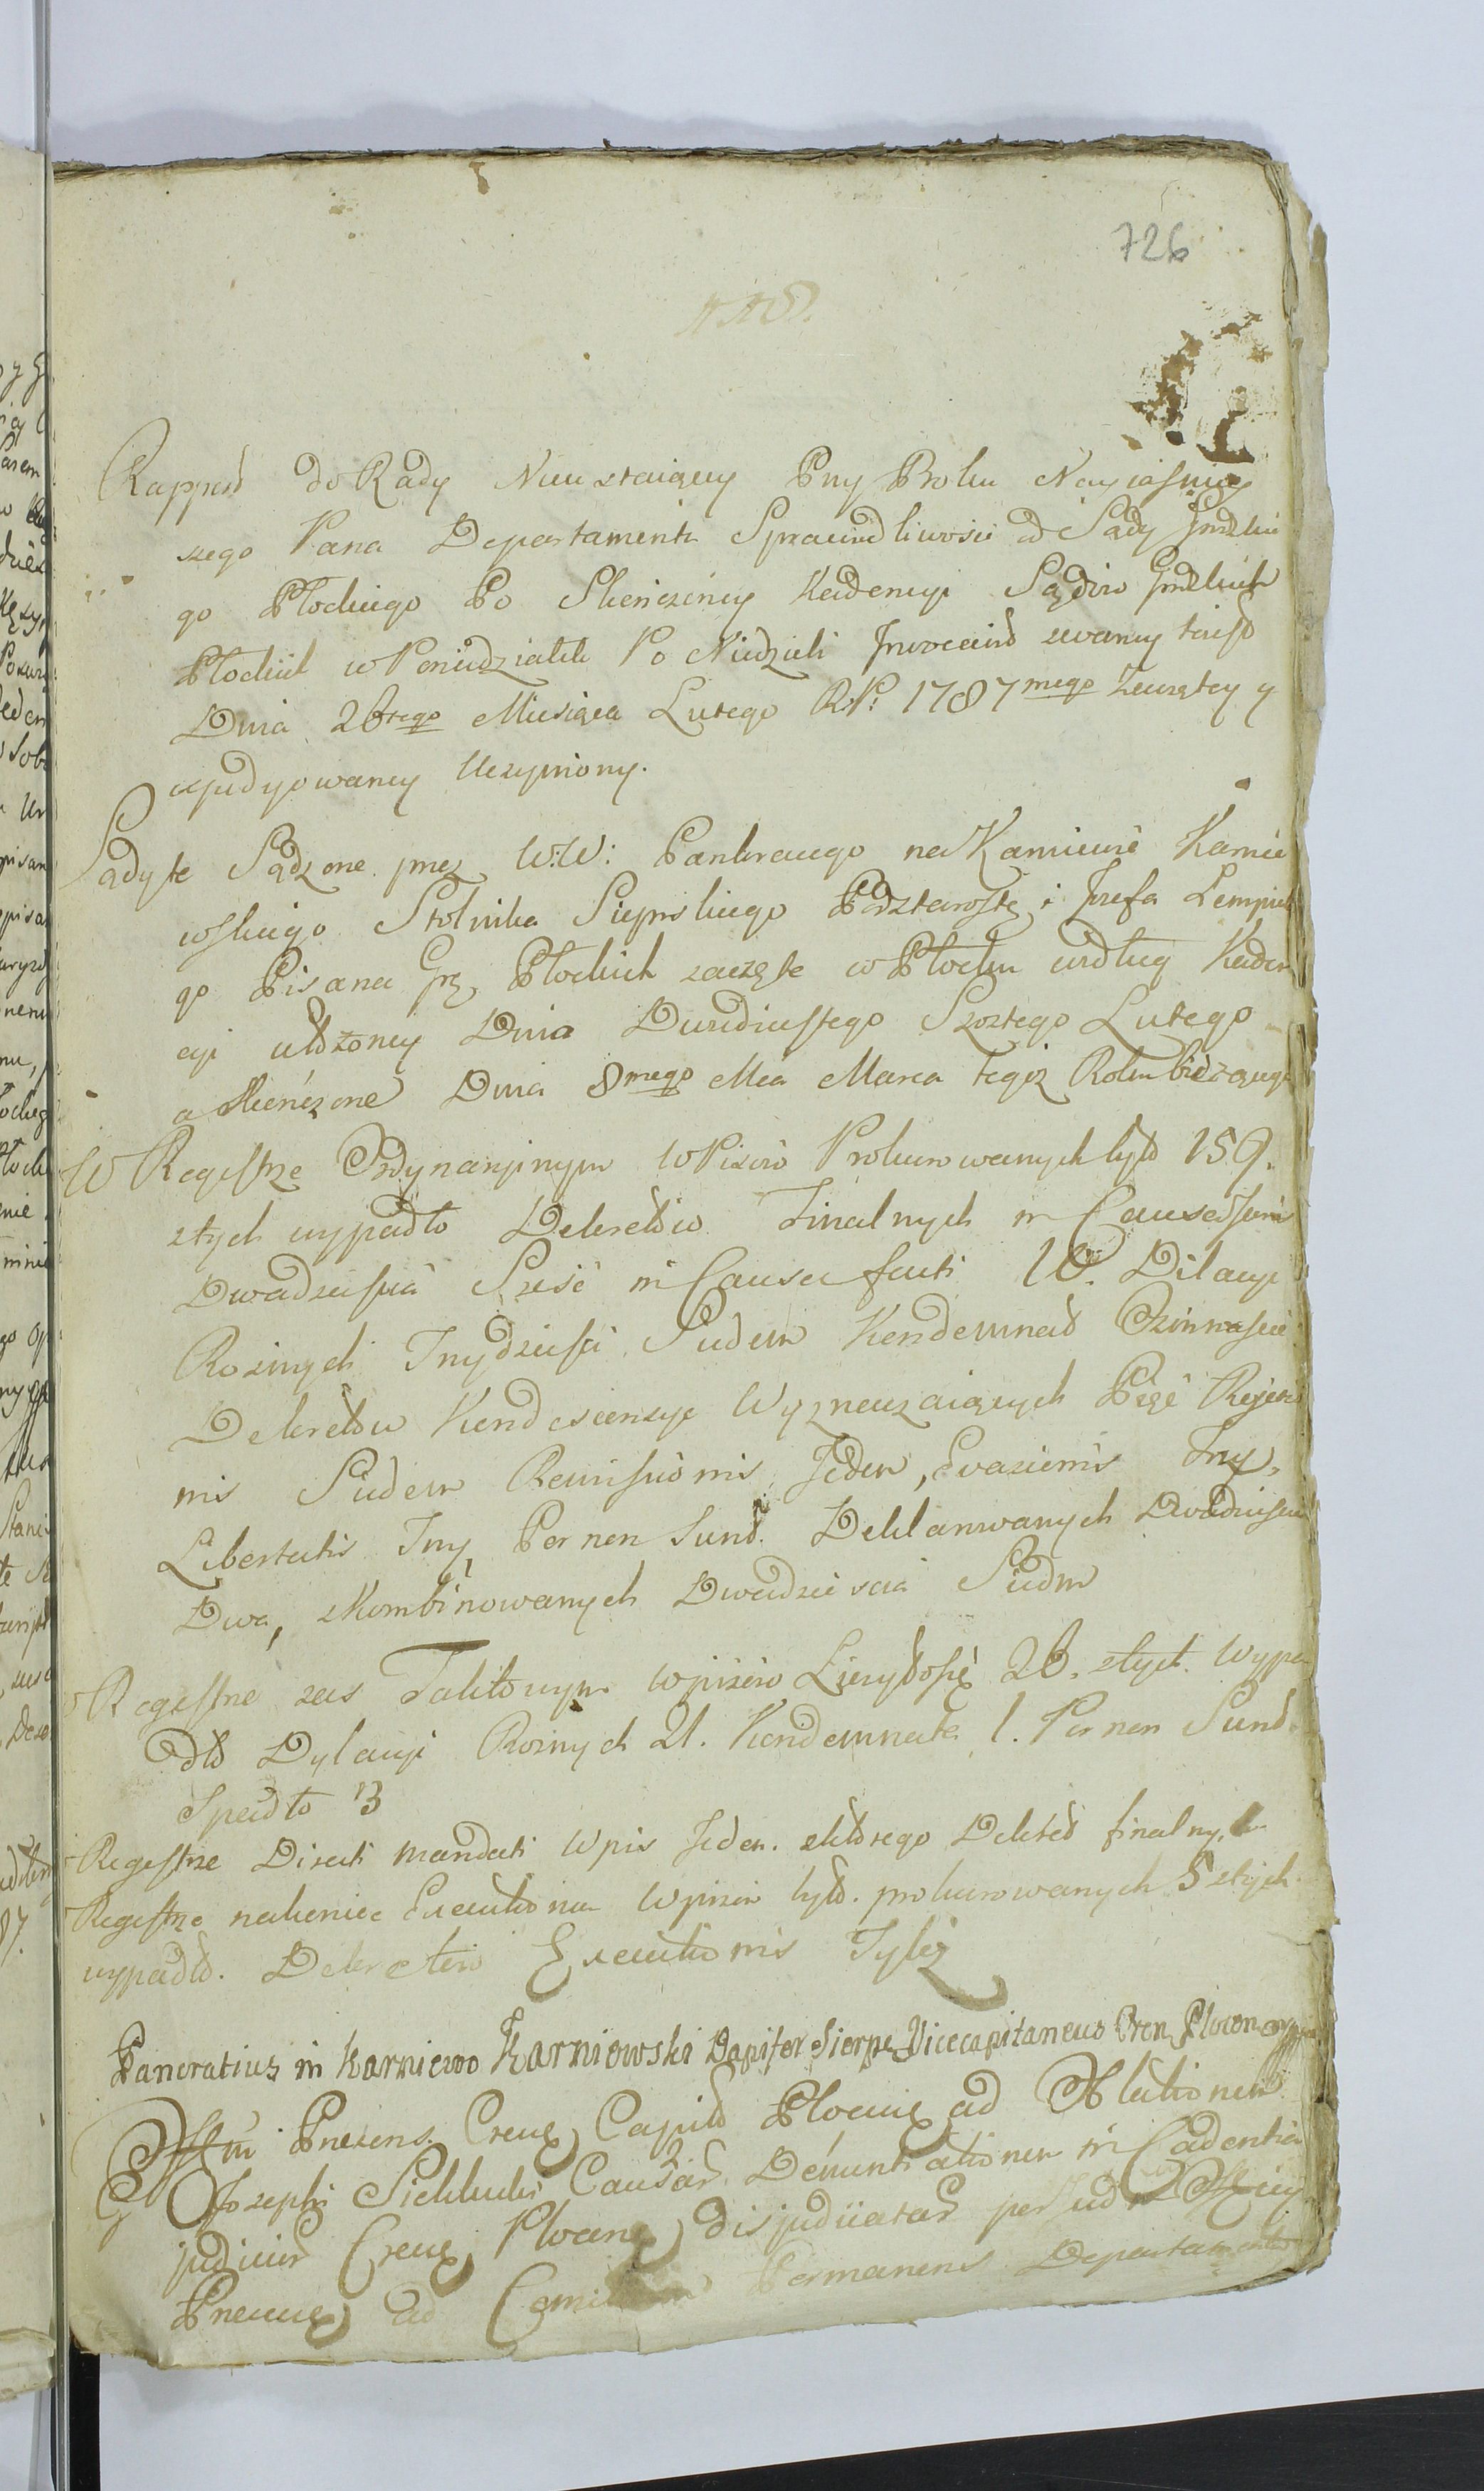 726
Rapport do Rady Nieustaiącey Przy Boku Nayiasniey
szego Pana Departamentu Sprawiedliwosci od Sądu Grodzkie
go Płockiego Po Skończoney Kadencyi Sądow Grodzkich
Płockich w Poniedziałek Po Niedzieli Invocavit zwaney to iest
Dnia 26tego Miesiąca Lutego R.P. 1787mego Zaczętey y
exjudykowaney Uczyniony.
Sądy te Sądzone przez W:W: Pankracego na Karniewie Karnie
wskiego Stolnika Sierpskiego Podstarostę i Jozefa Lempick
go Pisarza Gr. Płockich zaczęte w Płocku według Kaden
cyi ułożoney Dnia Dwudziestego Szostego Lutego
a skończone Dnia 8mego Mca Marca tegoż Roku bieżącego
W Regestrze Ordynaryinym Wpisow Prokurowanych było 159.
z tych wypadło Dekretow Finalnych in Causa Juris
Dwadziescia Szesć in Causa facti 10. Dilacyi
Roznych Trzydziesci Siedem Kondemnat Osimnascie
Dekretow Kondescensye Wyznaczaiących Pięć Rejecti
nis Siedem Remissionis Jeden, Evasionis Trzy,
Libertatis Trzy, Per non sunt Deklarowanych Dwadziescia
Dwa, skombinowanych Dwadziescia Siedm
Regestrze zas Taktowym wpisow Liczyło się 26. z tych Wypa
dło Dylacyi Roznych 21. Kondemnata 1. Per non Sunt
Spadło 3
Regestrze Directi Mandati Wpis Jeden z ktorego Dekret finalny.
Regestrze nakoniec Executionum Wpisow było prokurowanych 5 z tych
wypadło. Dekretow Executionis Tyleż
Pancratius in Karniewo Karniowski Dapifer Sierpc. Vicecapitaneus Cren Plocen
Offm Presens Crense Capitle Plocense ad Oblationem
G Josephi Causar. Denuntiationem in Cadentia
judicior Crens Plocens disjudicatar per Jud Offcii
Presens ad Permanens Departamento